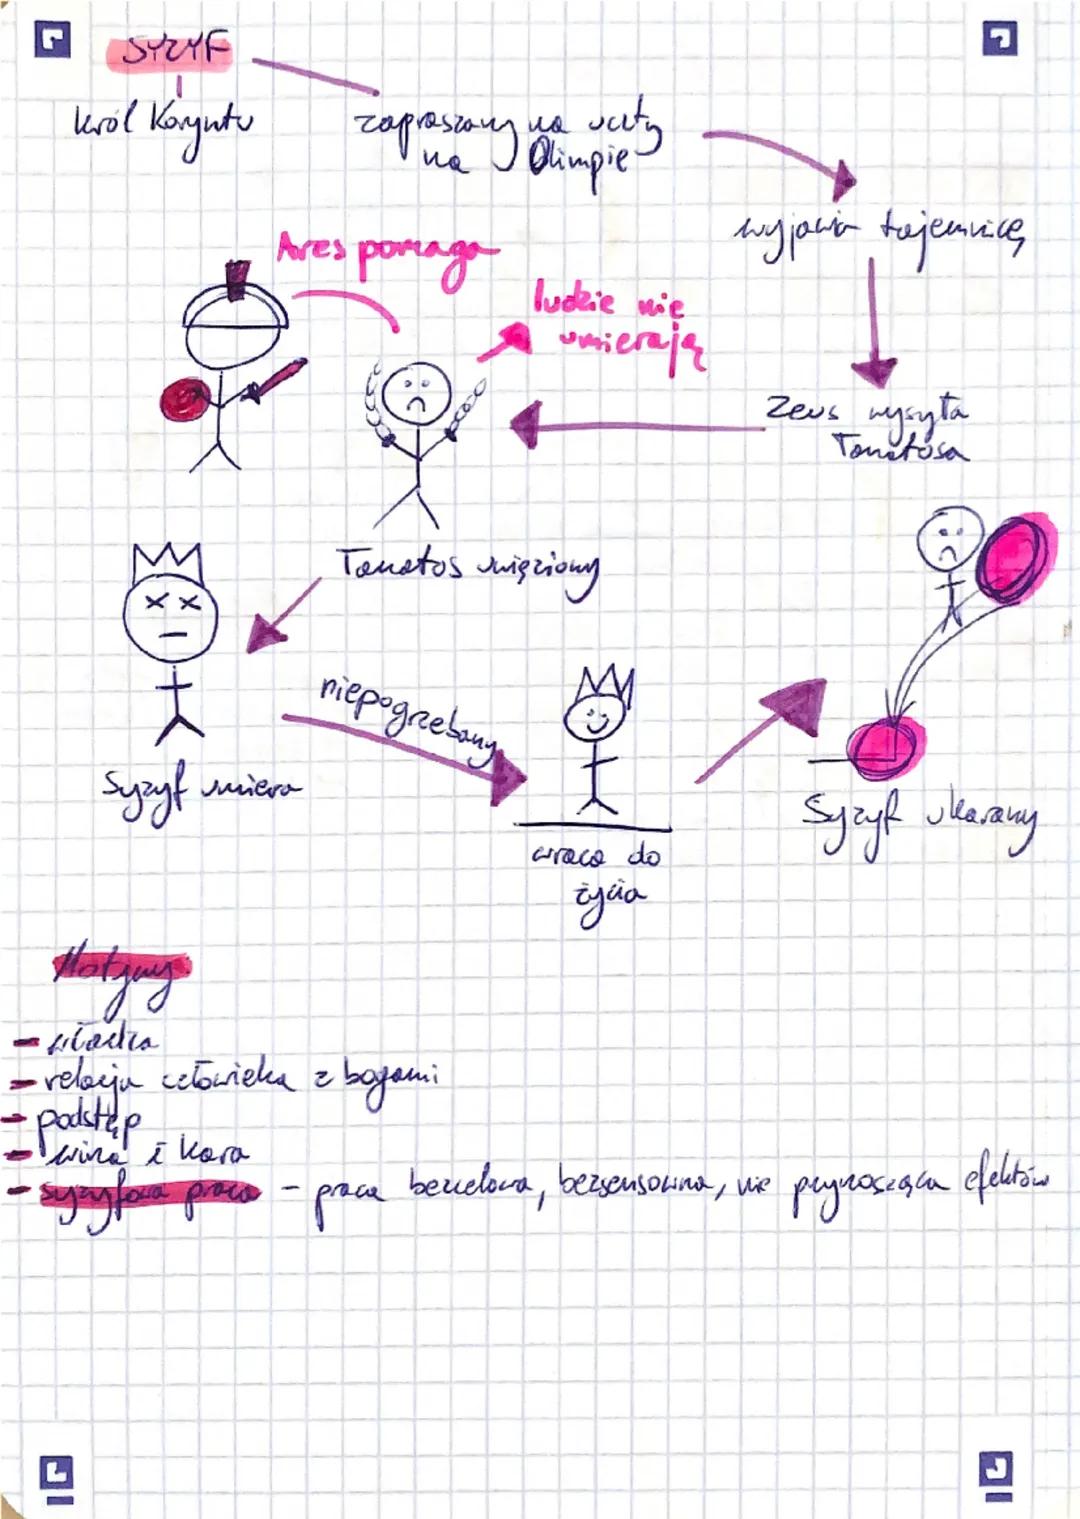 SYZYF
król Koryntu
zapraszany na uczty
na Olimpie
wyjawia tajemnicę
Ares pomaga
ludzie nie
umierają
Zeus wysyła
Tanatosa
Tanatos więziony
niepogrzebany
Syzyf umiera
wraca do
życia
Syzyf ukarany
Motywy
- władca
- relacja człowieka z bogami
- podstęp
- wina i kara
- syzyfowa praca - praca bezcelowa, bezsensowna, nie przynosząca efektów